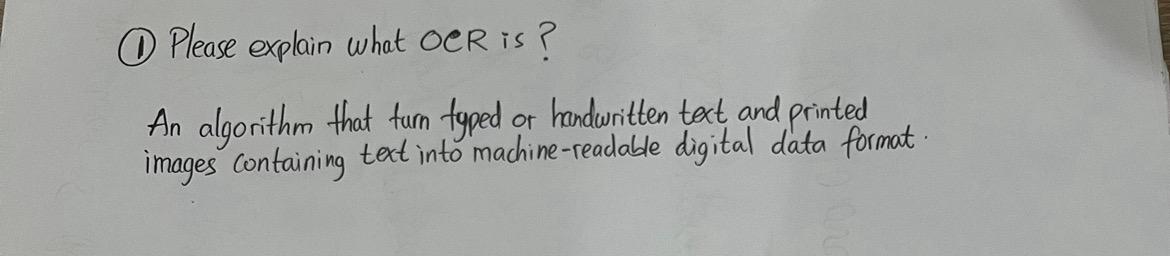 ① Please explain what OCR is ?
An algorithm that turn typed or handwritten text and printed
images containing text into machine-readable digital data format.